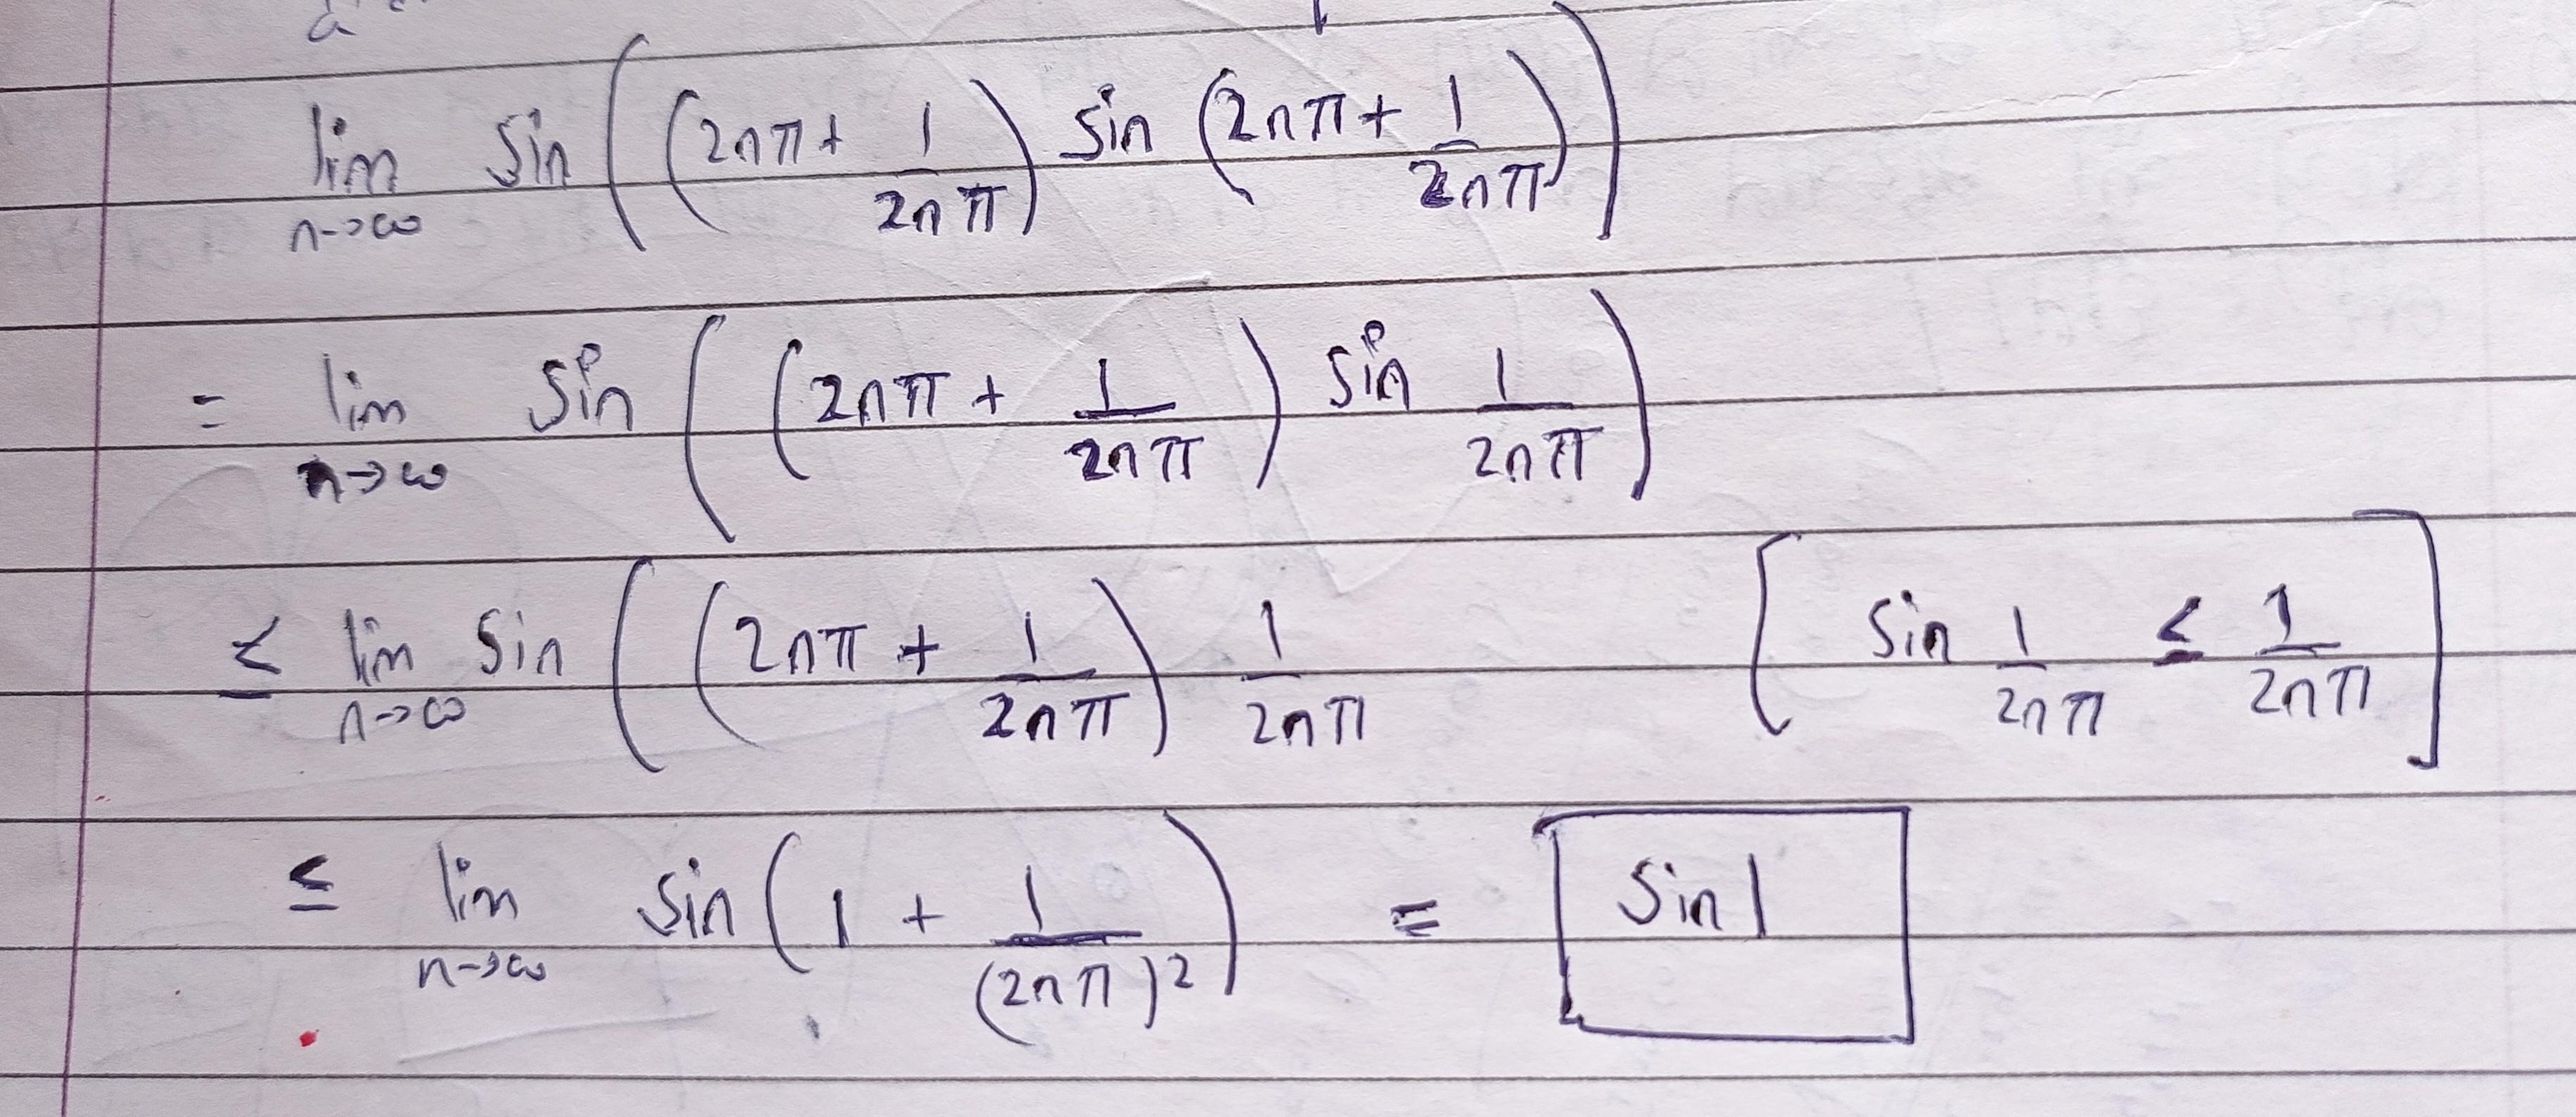 lim n→∞ Sin ((2nπ + 1/2nπ) Sin (2nπ + 1/2nπ))
= lim n→∞ Sin ((2nπ + 1/2nπ) Sin 1/2nπ)
≤ lim n→∞ Sin ((2nπ + 1/2nπ) 1/2nπ [Sin 1/2nπ ≤ 1/2nπ]
≤ lim n→∞ Sin (1 + 1/(2nπ)²) = Sin 1